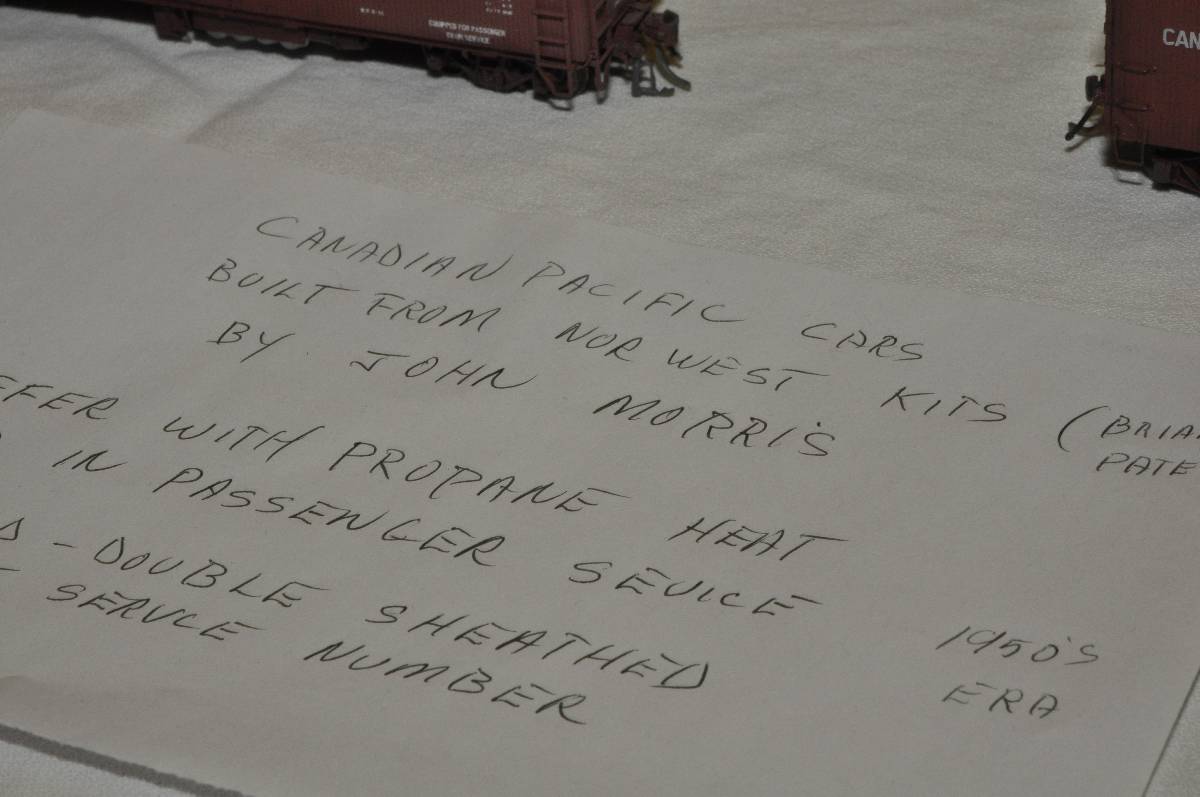 EQUIPPED FOR PASSENGER
TRAIN SERVICE
CAN
CANADIAN PACIFIC CARS
BUILT FROM NOR WEST KITS (BRIA
PATE
BY JOHN MORRIS
EFER WITH PROPANE HEAT
IN PASSENGER SEVICE
D - DOUBLE SHEATHED
SERVCE NUMBER
1950'S
ERA